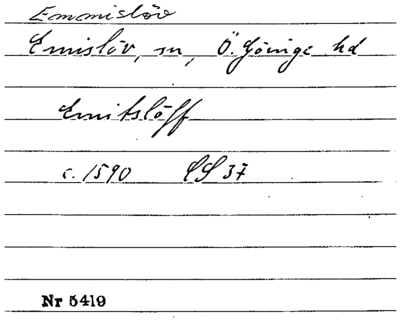 Emmislöv
Emislöv, sn, Ö. Göinge hd
Emitslöff
c. 1590 LS 37
Nr 5419